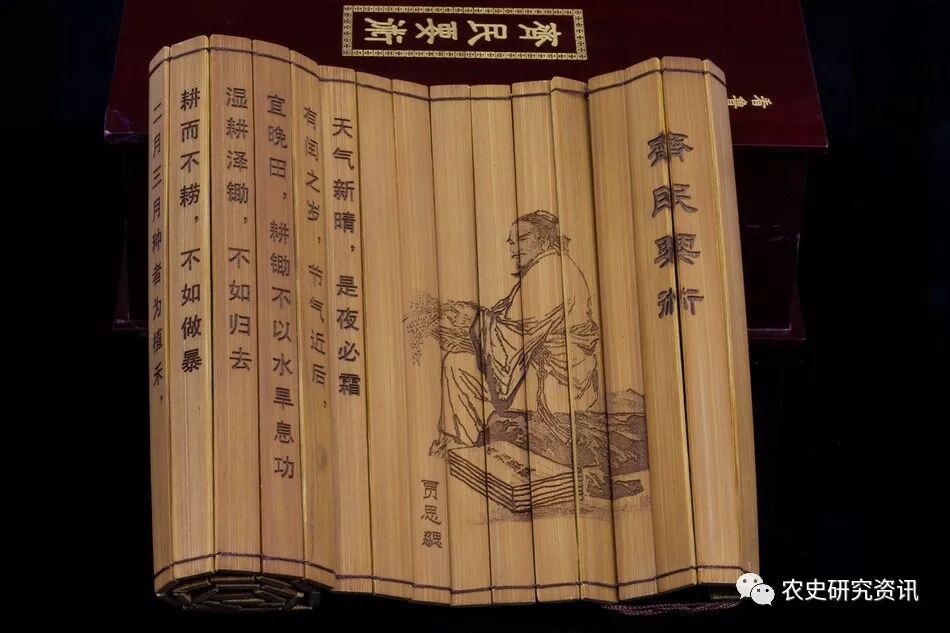 齊民要術
齊民要術
贾思勰
天气新晴，是夜必霜
有闰之岁，节气近后，
宜晚田，耕锄不以水旱息功
湿耕泽锄，不如归去
耕而不耢，不如做暴
二月三月种者为植禾，
农史研究资讯